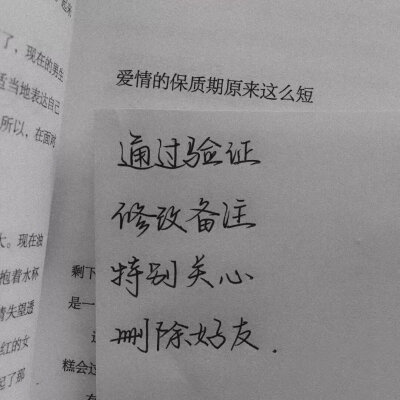 了，现在的男生
适当地表达自己
所以，在面对
大。现在放
抱着水杯
情失望透
红的女
起了那
爱情的保质期原来这么短
通过验证
修改备注
特别关心
删除好友.
剩下
是一
糕会过